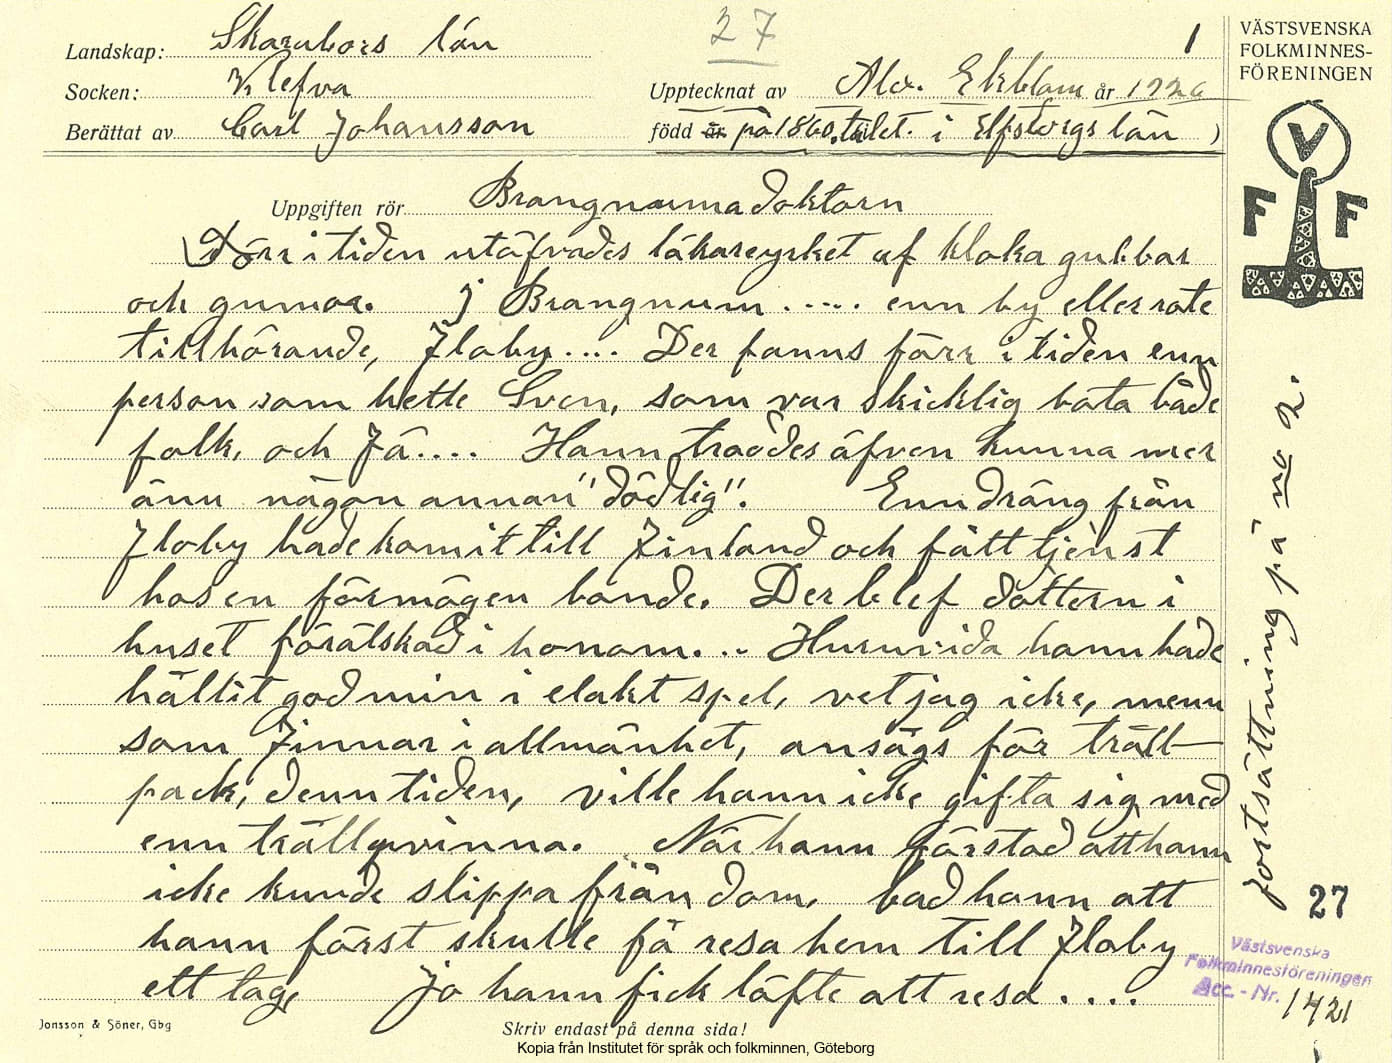 27
1
Landskap: Skarabors län
Socken: Klefva
Upptecknat av Alex. Ekblom år 192
Berättat av Carl Johansson
född år på 1860.talet. i Elfsborgs län )
Uppgiften rör Brangnumadoktorn
Förr i tiden utöfvades läkareyrket af kloka gubbar
och gumor. J Brangnum ..... enn by eller rote
tillhörande, Floby .... Der fanns förr i tiden enn
person som hette Sven, som var skicklig bota både
folk, och fä.... Hann troddes äfven kunna mer
änn någon annan "dödlig". Enn dräng från
Floby hade komit till Finland och fått tjenst
hos en förmögen bonde. Der blef dottern i
huset förälskad i honom... Huruvida hann hade
hållit god min i elakt spel, vet jag icke, menn
som Finnar i allmänhet, ansågs för troll-
pack, denn tiden, ville hann icke gifta sig med
enn trollqvinna. När hann förstod att hann
icke kunde slippa från dom, bad hann att
hann först skulle få resa hem till Floby
ett tag, Jo hann fick löfte att resa ....
Jonsson & Söner, Gbg
Skriv endast på denna sida!
Kopia från Institutet för språk och folkminnen, Göteborg
VÄSTSVENSKA
FOLKMINNES-
FÖRENINGEN
V
F F
fortsättning på no 2.
27
Västsvenska
Folkminnesföreningen
Acc. - Nr. 1421